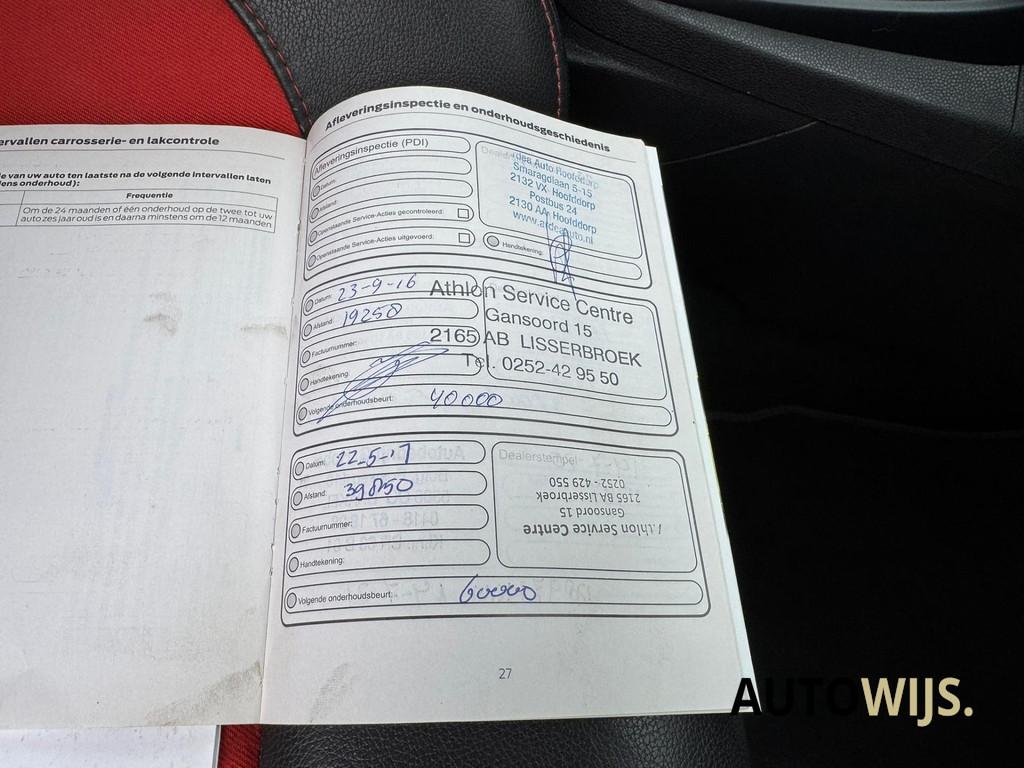 ervallen carrosserie- en lakcontrole
e van uw auto ten laatste na de volgende intervallen laten
dens onderhoud):
Frequentie
Om de 24 maanden of één onderhoud op de twee tot uw
auto zes jaar oud is en daarna minstens om de 12 maanden
Afleveringsinspectie en onderhoudsgeschiedenis
Afleveringsinspectie (PDI)
Datum:
Afstand:
Openstaande Service-Acties gecontroleerd:
Openstaande Service-Acties uitgevoerd:
Auto Hoofddorp
Smaragdlaan 5-15
2132 VX Hoofddorp
Postbus 24
2130 AA Hoofddorp
www.ardeaauto.nl
Handtekening:
Datum: 23-9-16
Afstand: 19250
Factuurnummer:
Handtekening:
Volgende onderhoudsbeurt: 40000
Athlon Service Centre
Gansoord 15
2165 AB LISSERBROEK
Tel. 0252-42 95 50
Datum: 22-5-17
Afstand: 39850
Factuurnummer:
Handtekening:
Volgende onderhoudsbeurt: 60000
Dealerstempel
Athlon Service Centre
Gansoord 15
2165 BA Lisserbroek
0252 - 429 550
27
AUTOWIJS.